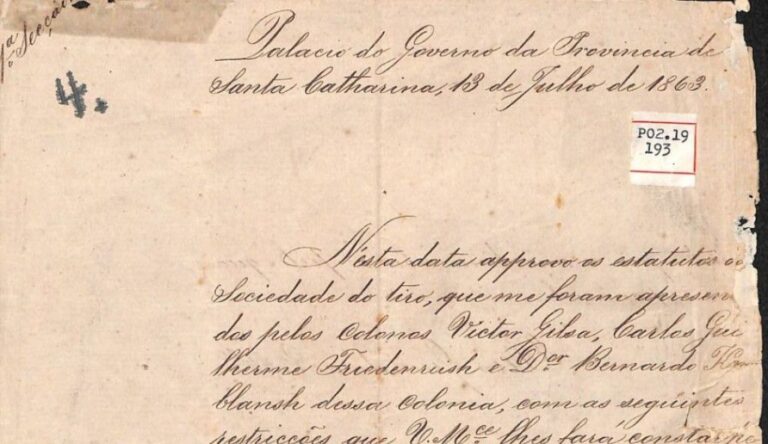 1ª Secção
4.
Palacio do Governo da Provincia de
Santa Catharina, 13 de Julho de 1863.
P02.19
193
Nésta data approvo os estatutos
Sociedade do tiro, que me foram apresen
dos pelos colonos Victor Gilsa, Carlos Gui
lherme Friedenreish e Dor Bernardo
blansh dessa colonia, com as seguintes
restricções que V. Mce lhes fará